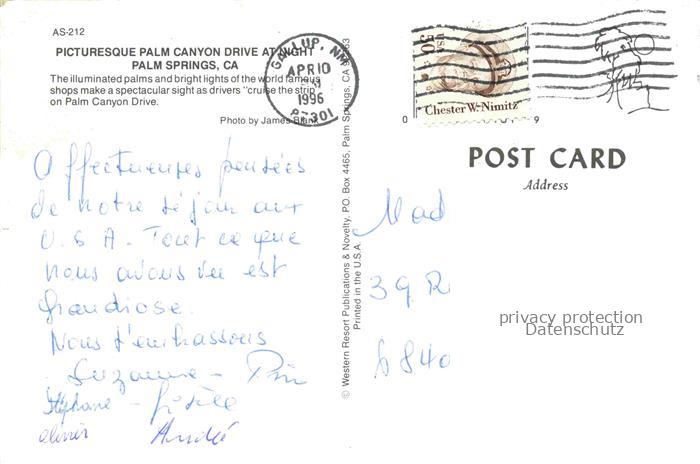 AS-212
PICTURESQUE PALM CANYON DRIVE AT NIGHT
PALM SPRINGS, CA
The illuminated palms and bright lights of the world famous
shops make a spectacular sight as drivers "cruise the strip"
on Palm Canyon Drive.
Photo by James Blank
GALLUP, NM
APR 10
1996
87301
USA
50
Chester W. Nimitz
© Western Resort Publications & Novelty, PO. Box 4465, Palm Springs, CA 92263
Printed in the U.S.A.
POST CARD
Address
Affectueuses pensées
de notre séjour aux
U.S.A. Tout ce que
nous avons vu est
grandiose.
Nous t'embrassons
Suzanne -
Stéphane - Gisèle
Olivier André
Mad
39 R
6840
privacy protection
Datenschutz